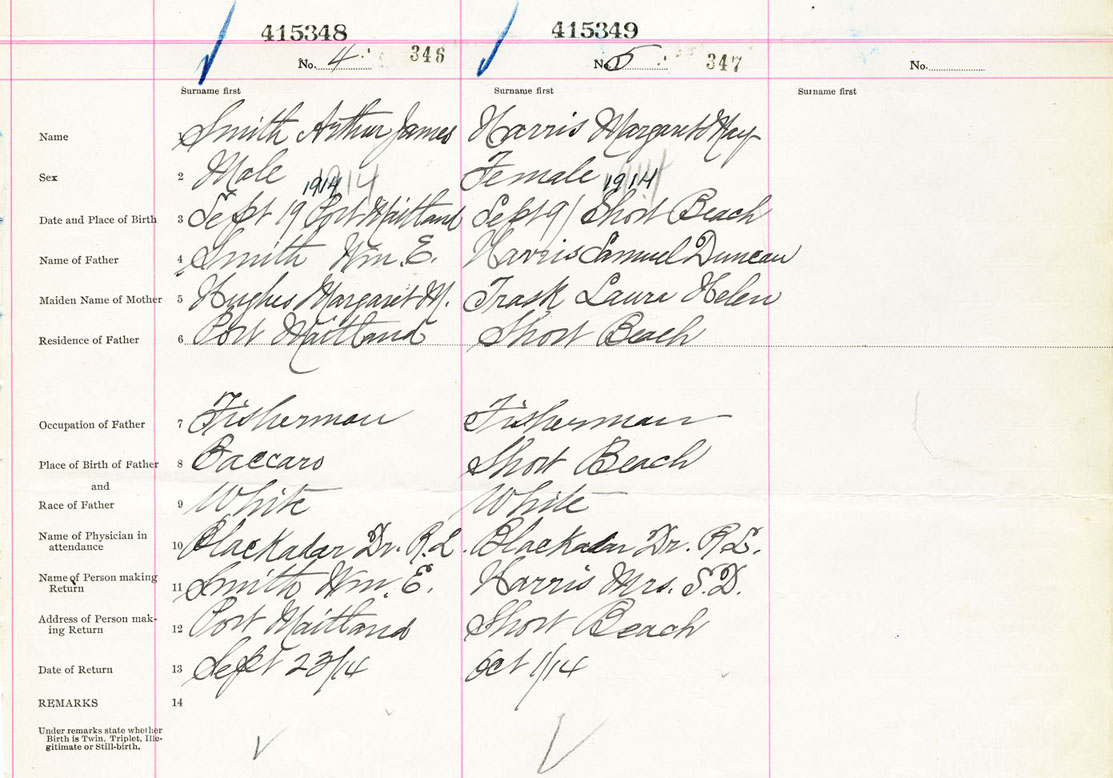 415348 415349
No. 4. 346 No. 5 347 No.
Surname first Surname first Surname first
Name 1 Smith Arthur James Harris Margaret May
Sex 2 Male Female
1914 1914 1914 1914
Date and Place of Birth 3 Sept 19 Port Maitland Sept 9/ Short Beach
Name of Father 4 Smith Wm. E. Harris Samuel Duncan
Maiden Name of Mother 5 Hughes Margaret M. Trask Laura Helen
Residence of Father 6 Port Maitland Short Beach
Occupation of Father 7 Fisherman Fisherman
Place of Birth of Father 8 Baccaro Short Beach
and
Race of Father 9 White White
Name of Physician in
attendance 10 Blackadar Dr. R.L. Blackadar Dr. R.L.
Name of Person making
Return 11 Smith Wm. E. Harris Mrs. S.D.
Address of Person mak-
ing Return 12 Port Maitland Short Beach
Date of Return 13 Sept 23/14 Oct 1/14
REMARKS 14
Under remarks state whether
Birth is Twin, Triplet, Ille-
gitimate or Still-birth.